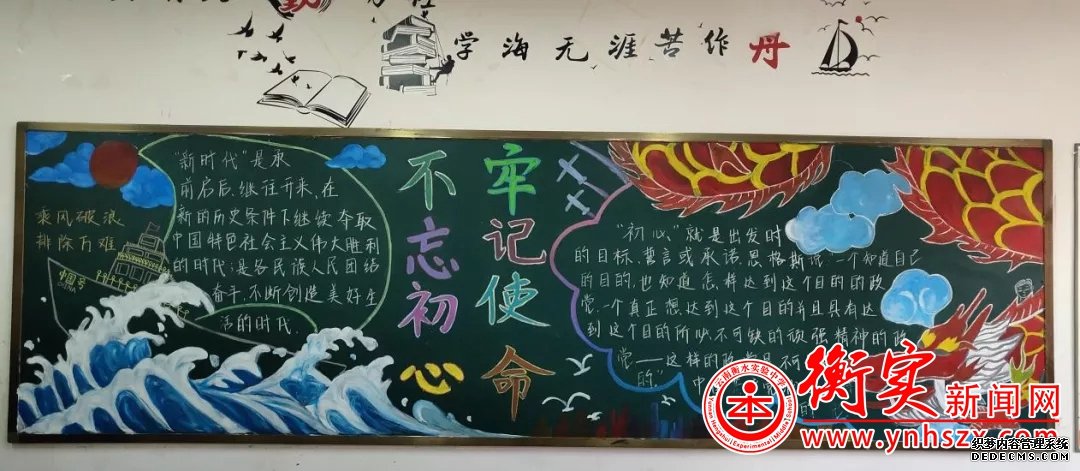 学海无涯苦作舟
乘风破浪
排除万难
中国号
CHINA
"新时代"是承
前启后、继往开来、在
新的历史条件下继续夺取
中国特色社会主义伟大胜利
的时代;是各民族人民团结
奋斗、不断创造美好生
活的时代.
不忘初心
牢记使命
"初心"就是出发时
的目标、莫言或承诺,恩格斯说:一个知道自己
的目的,也知道怎样达到这个目的的政
党,一个真正想达到这个目的并且具有达
到这个目的所必不可缺的顽强精神的政
党——这样的政党是不可
的."
中
云南衡水实验中学
衡实新闻网
www.ynhszx.com
织梦内容管理系统
DEDECMS.COM